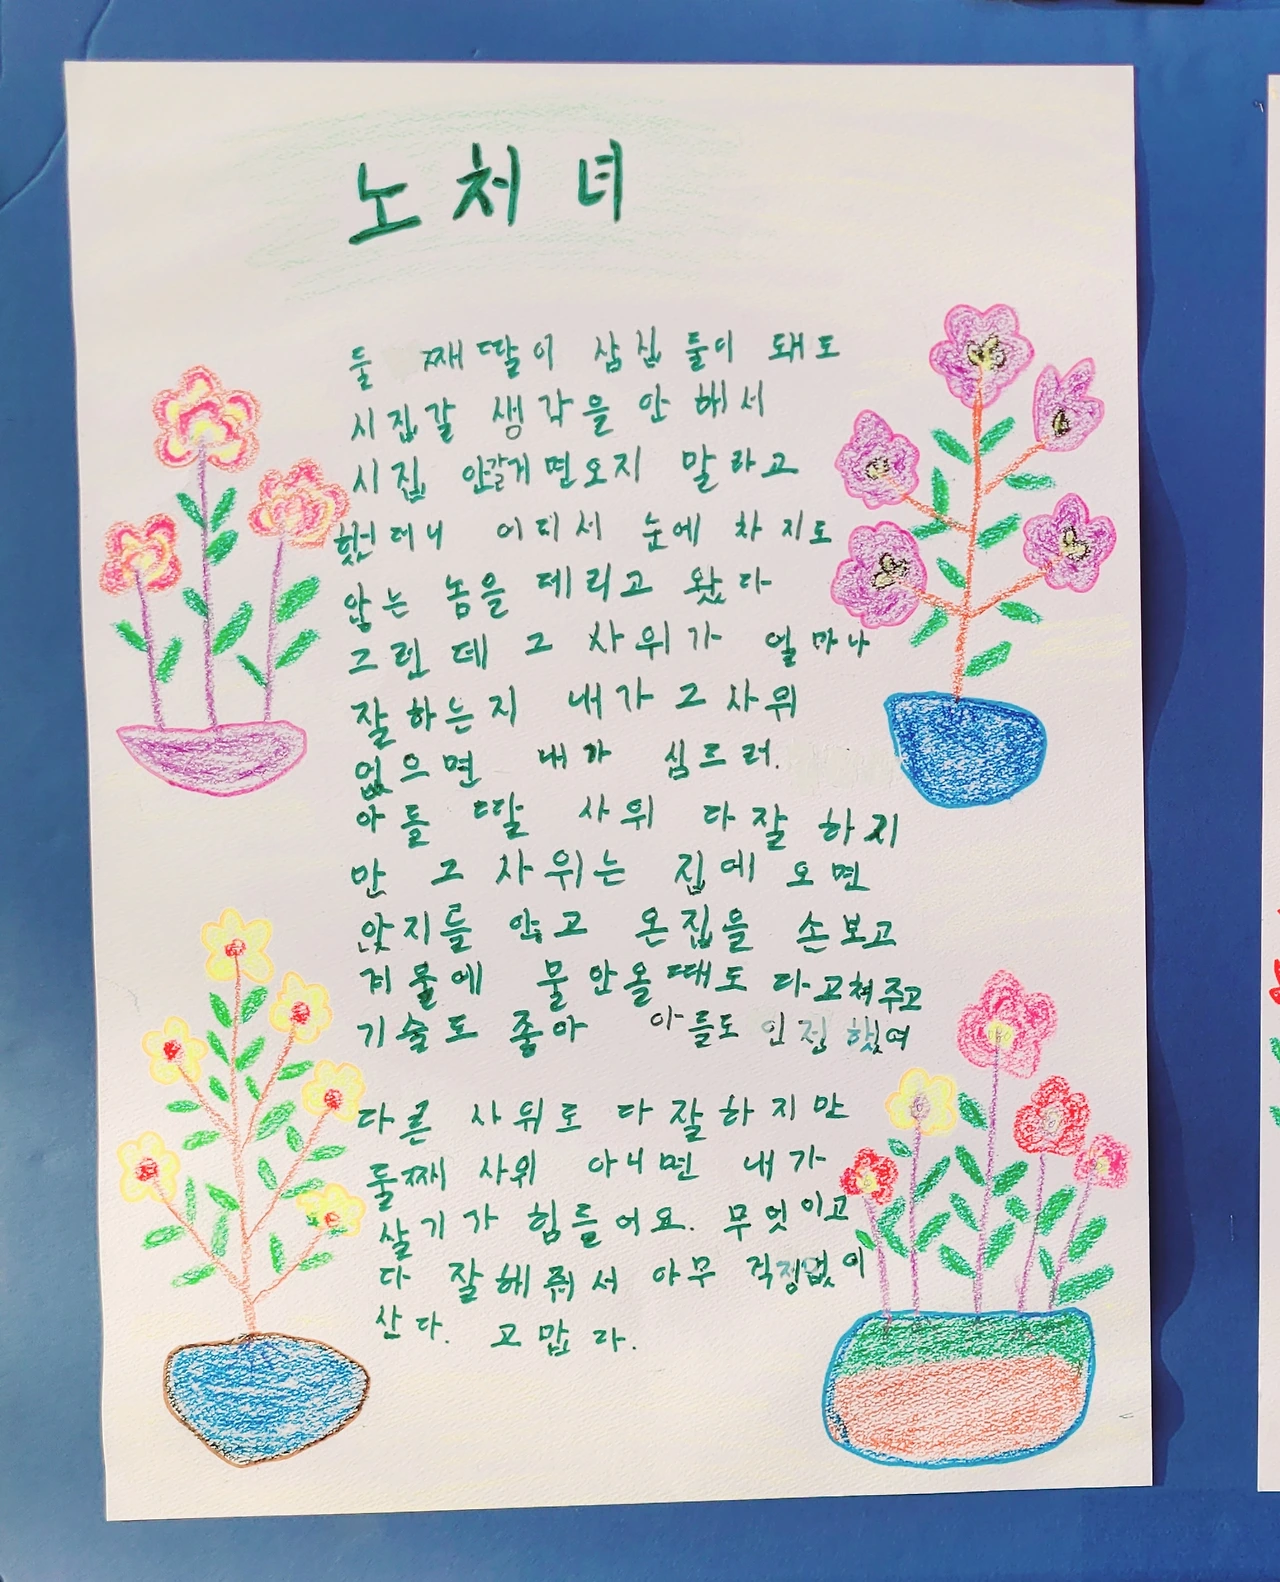 노처녀
둘 째 딸이 삼십 둘이 돼도
시집갈 생각을 안 해서
시집 안갈게면오지 말라고
했더니 어디서 눈에 차지도
않는 놈을 데리고 왔다
그런데 그 사위가 얼마나
잘하는지 내가 그 사위
없으면 내가 심드러.
아들 딸 사위 다잘 하지
만 그 사위는 집에 오면
앉지를 안고 온집을 손보고
겨울에 물안올때도 다고쳐주고
기술도 좋아 아들도 인정했여
다른 사위로 다 잘하지만
둘째 사위 아니면 내가
살기가 힘들어요. 무엇이고
다 잘해줘서 아무 걱정없이
산다. 고맙다.